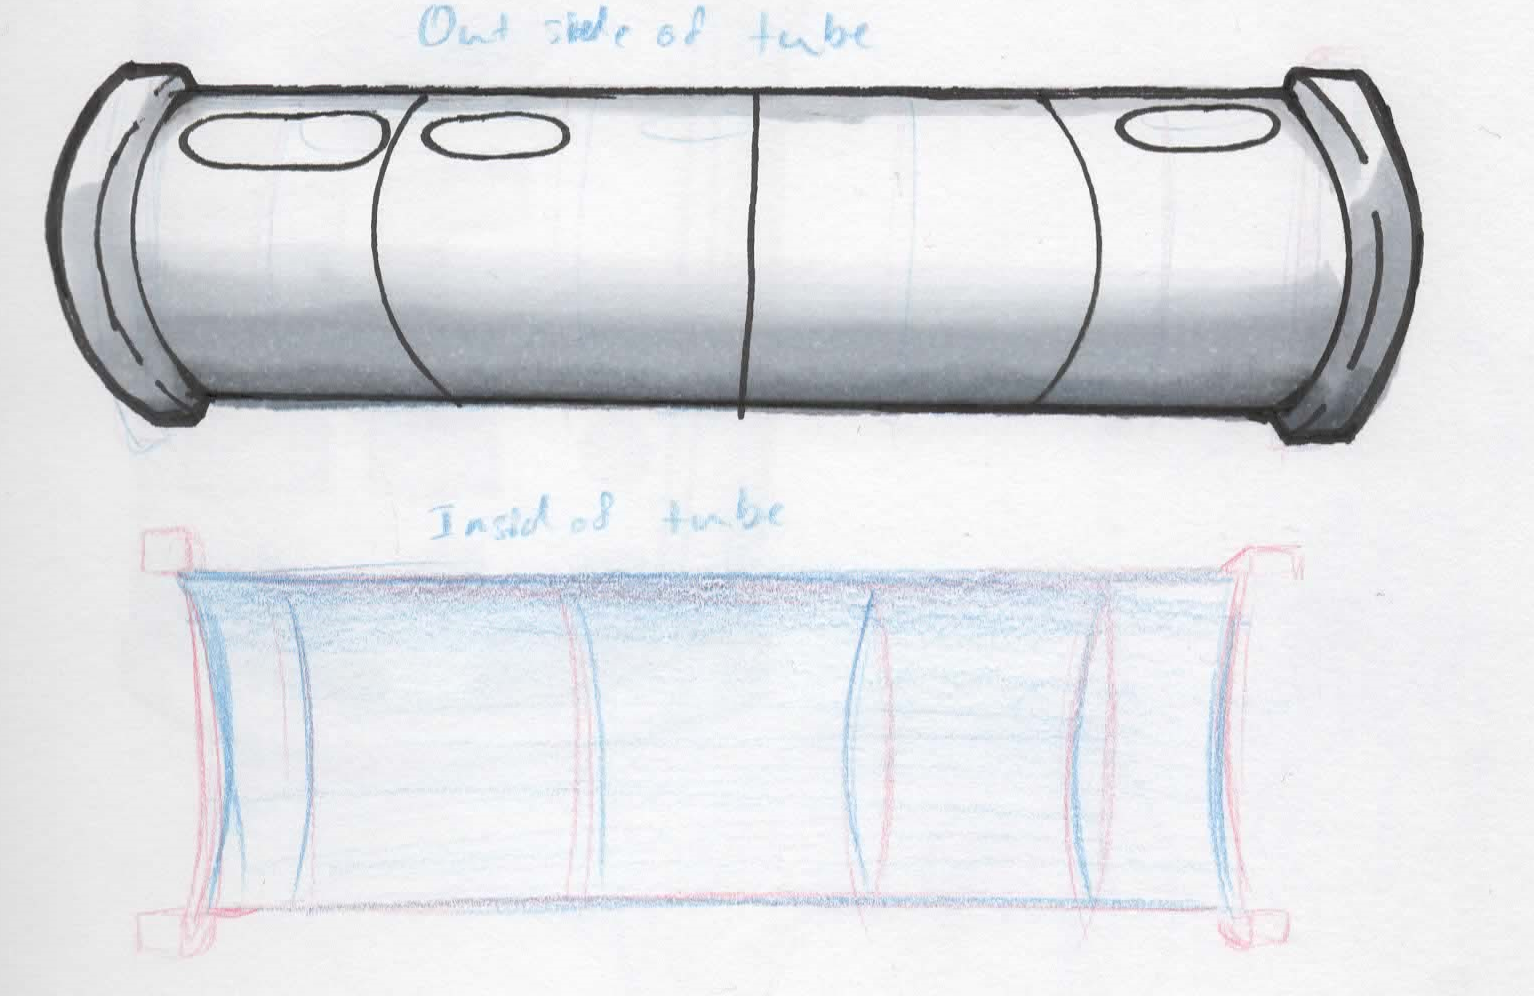 Out side of tube
Insid of tube